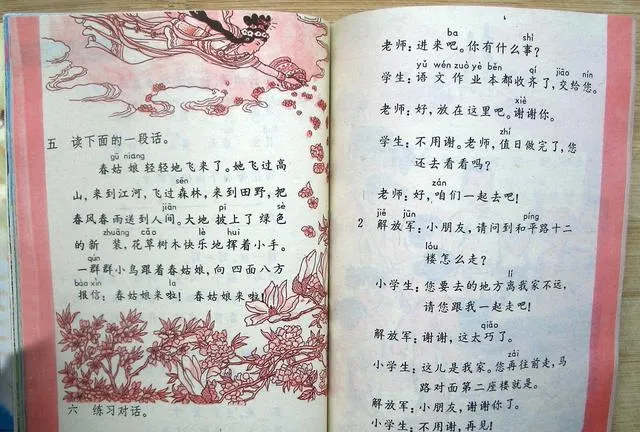 五 读下面的一段话。
gū niang
春姑娘轻轻地飞来了。她飞过高
sēn
山,来到江河,飞过森林,来到田野,把
jiān pī sè
春风春雨送到人间。大地披上了绿色
zhuāng cǎo lè huī
的新装,花草树木快乐地挥着小手。
qún
一群群小鸟跟着春姑娘,向四面八方
bào xìn la
报信:春姑娘来啦!春姑娘来啦!
六 练习对话。
ba shì
老师:进来吧。你有什么事?
yǔ wén zuò yè běn qí jiāo nín
学生:语文作业本都收齐了,交给您。
xiè
老师:好,放在这里吧。谢谢你。
zhí
学生:不用谢。老师,值日做完了,您
还去看看吗?
zán
老师:好,咱们一起去吧!
jiě jūn píng
2 解放军:小朋友,请问到和平路十二
lóu
楼怎么走?
lí
小学生:您要去的地方离我家不远,
请您跟我一起走吧!
qiǎo
解放军:谢谢,这太巧了。
zài
小学生:这儿是我家。您再往前走,马
路对面第二座楼就是。
解放军:小朋友,谢谢你了。
小学生:不用谢,再见!